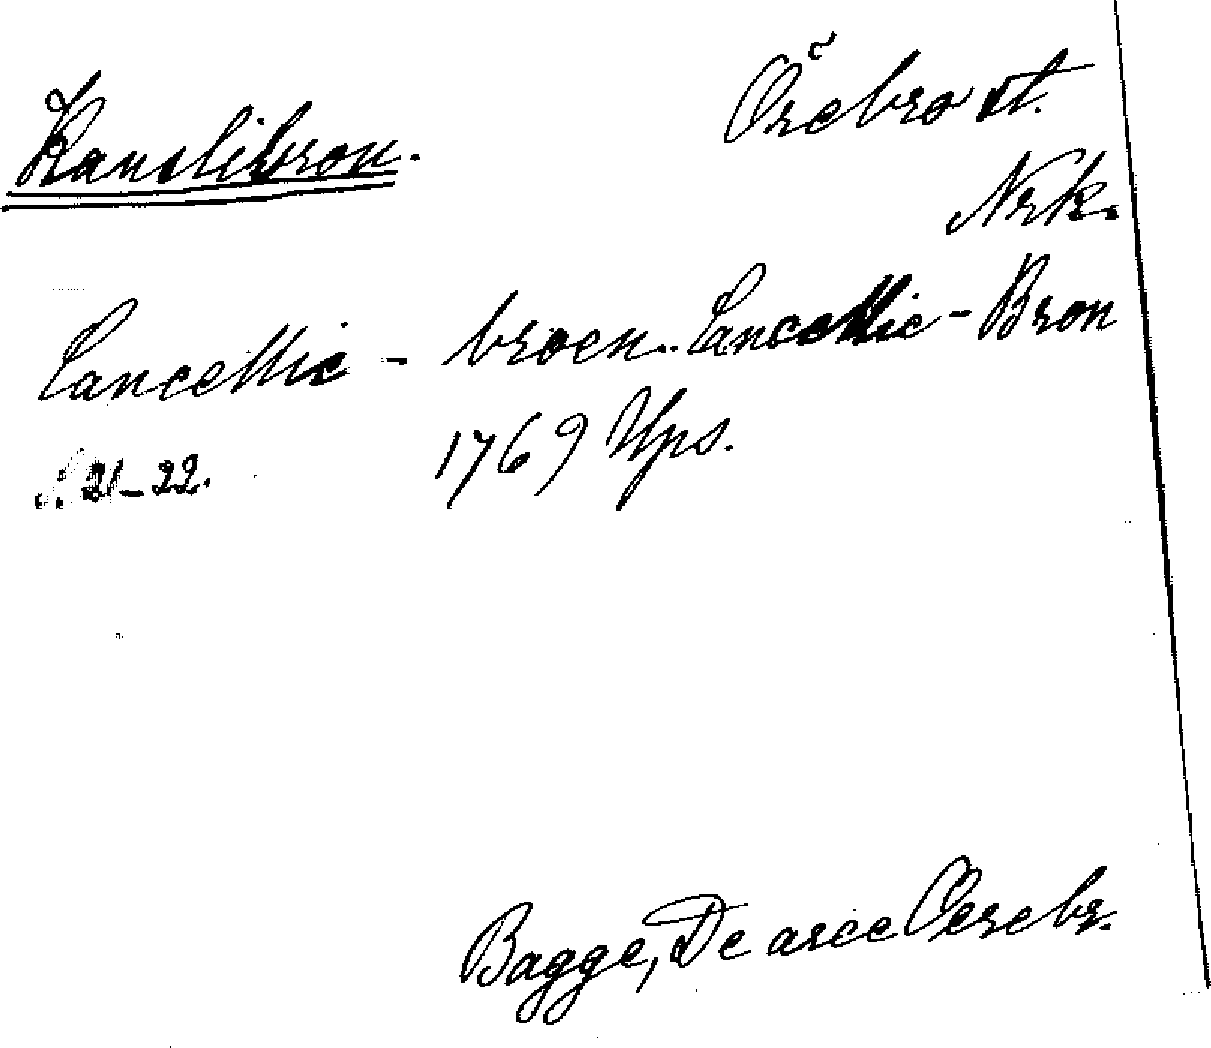 Kanslibron.
Örebro st.
Nrk.
Cancellie - broen. Cancellie - Bron
s. 21-22.
1769 Ups.
Bagge, De arce Oerebr.